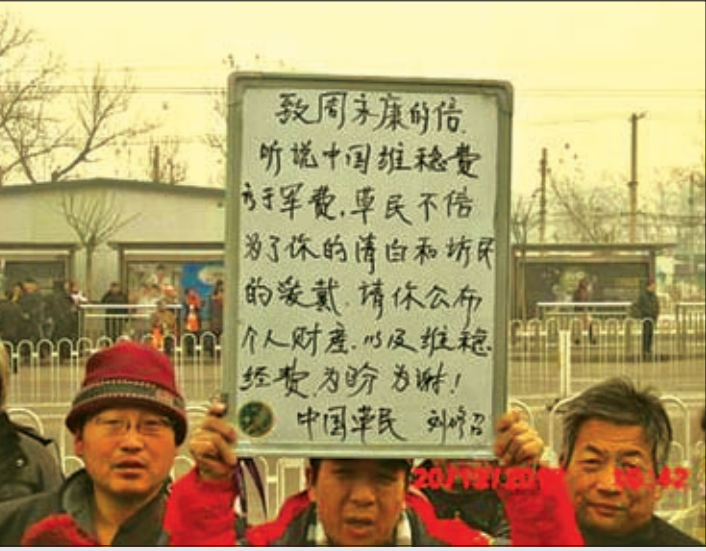 致周永康的信.
听说中国维稳费
高于军费,草民不信
为了你的清白和访民
的爱戴,请你公布
个人财产,以及维稳
经费,为盼为谢!
中国草民 刘
20/12/20